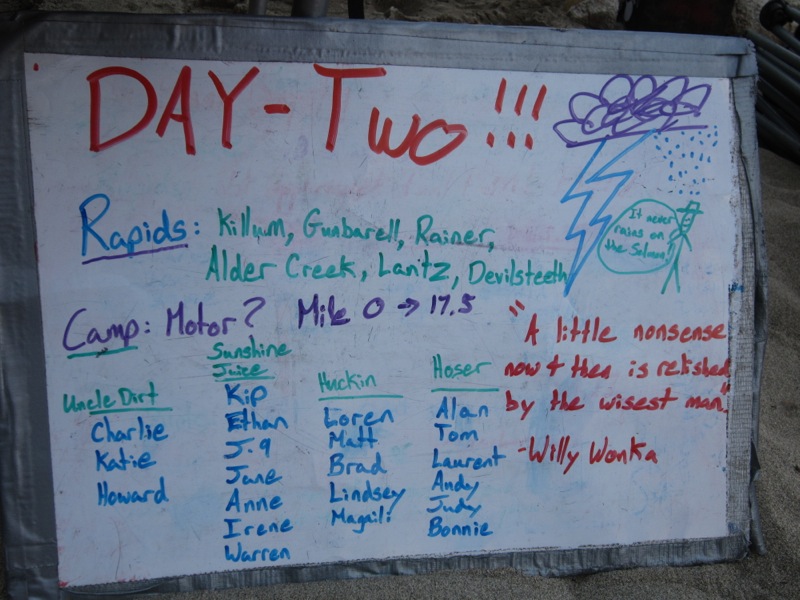 DAY-Two!!!
Rapids: Killum, Gunbarell, Rainer,
Alder Creek, Lantz, Devilsteeth
It never
rains on
the Salmon!
Camp: Motor? Mile 0 → 17.5
"A little nonsense
now + then is relished
by the wisest man."
-Willy Wonka
Uncle Dirt
Charlie
Katie
Howard
Sunshine
Juice
Kip
Ethan
J-9
Jane
Anne
Irene
Warren
Huckin
Loren
Matt
Brad
Lindsey
Magaili
Hoser
Alan
Tom
Laurent
Andy
Judy
Bonnie